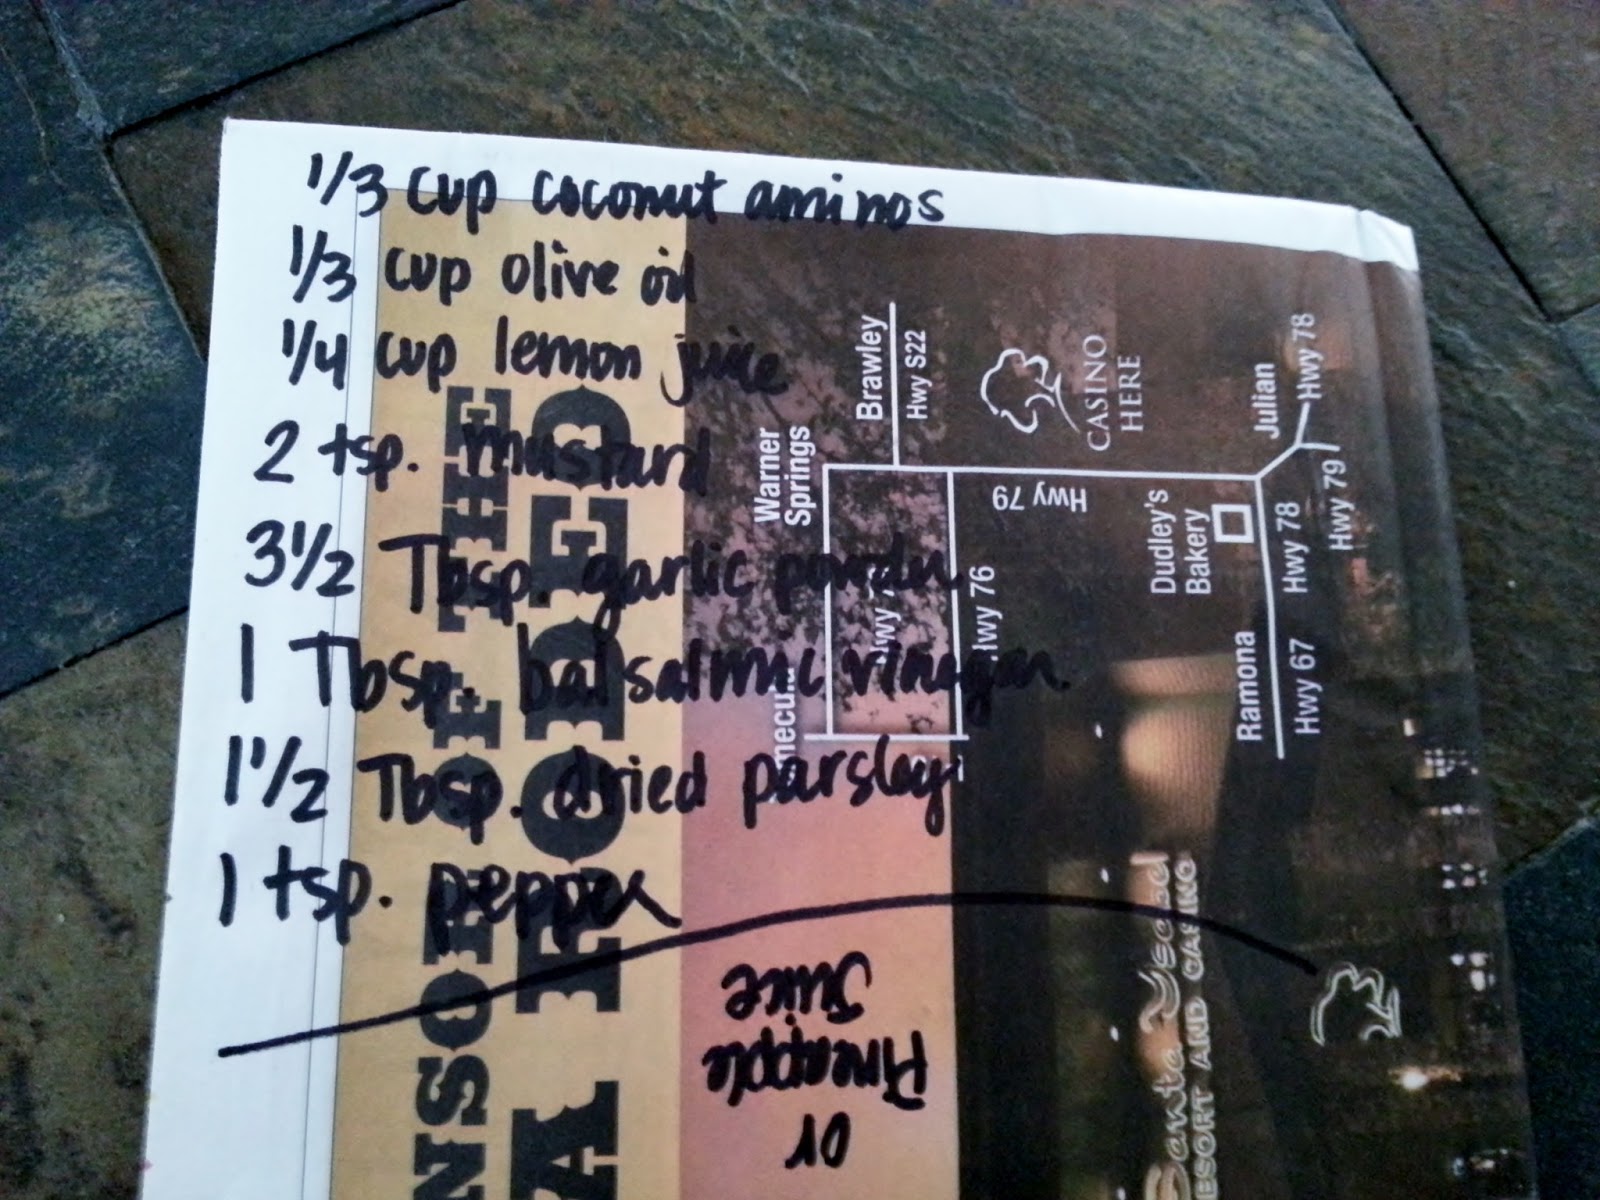 1/3 cup coconut aminos
1/3 cup olive oil
1/4 cup lemon juice
2 tsp. mustard
3 1/2 Tbsp. garlic powder
1 Tbsp. balsalmic vinegar
1 1/2 Tbsp. dried parsley
1 tsp. pepper
or
Pineapple
Juice
OF THE
FODED
A
Brawley
Hwy S22
Warner
Springs
CASINO
HERE
Julian
Hwy 78
Hwy 79
Hwy 79
Dudley's
Bakery
Hwy 78
Hwy 76
Ramona
Hwy 67
Santa Ysabel
RESORT AND CASINO